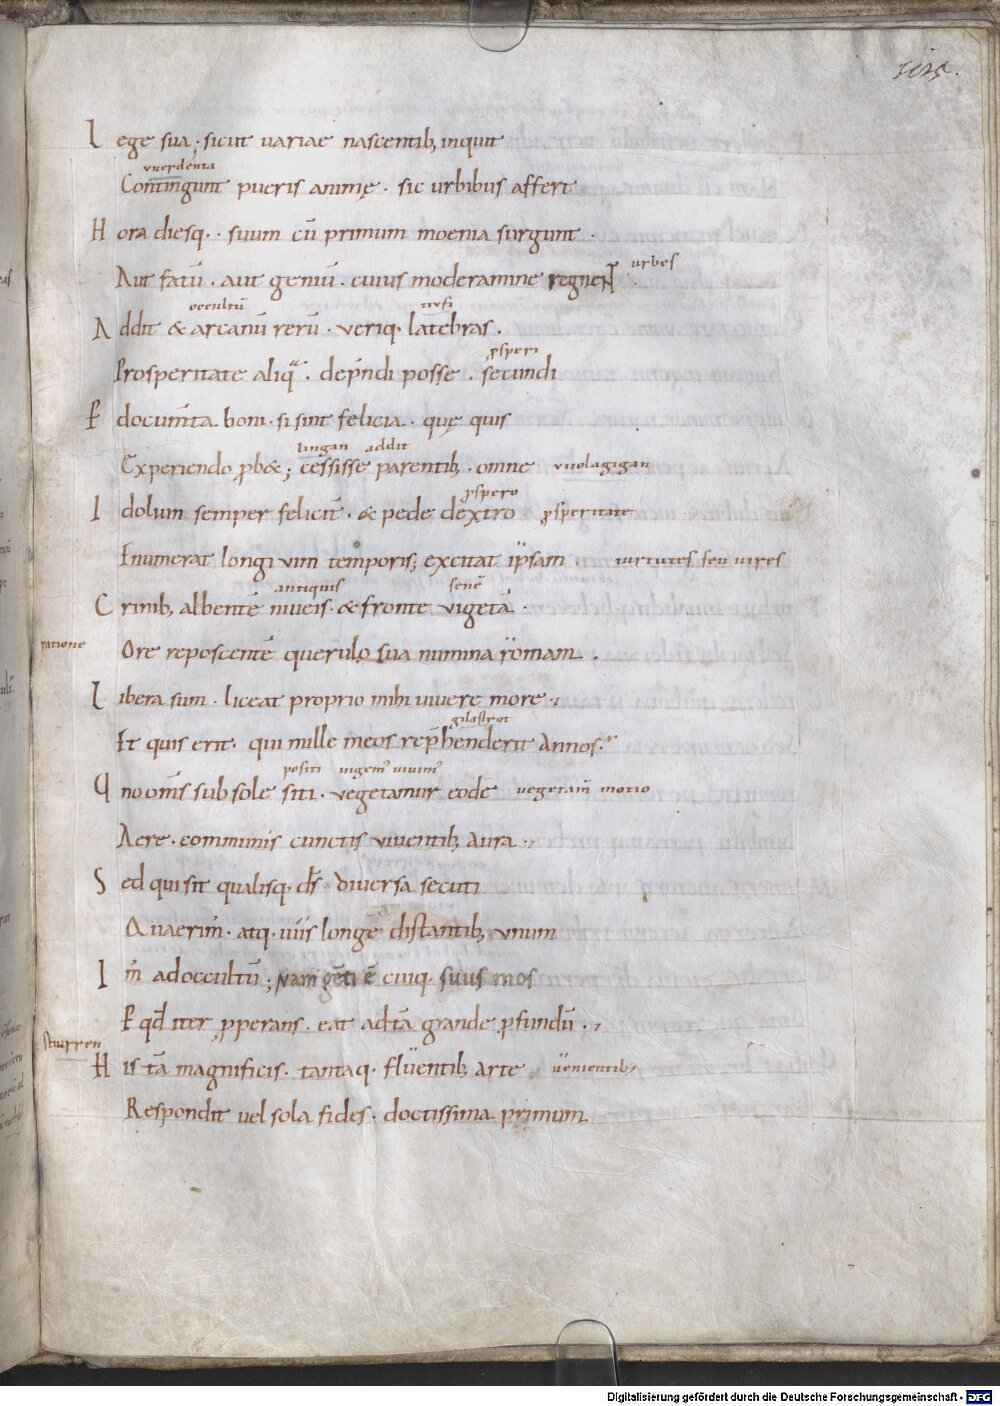 Lege sua; sicut variae nascentib; inquit
vuerdenta
Contingunt pueris animę. sic urbibus affert
Hora diesq. suum cū primum moenia surgunt.
urbes
Aut fatū. aut geniū. cuius moderamine regnen̄t
occultū tiufi
Addit & arcanū rerū. veriq. latebras.
ꝓsperi
Prosperitate aliqͣ. dep̄ndi posse. secundi
F documīta boni. si sint felicia. quę quis
lingan addit
Experiendo ꝓb&; cessisse parentib; omne vuolagigan
ꝓspero
Idolum semper felicit̄. & pede dextro ꝓsperitate
Enumerat longi vim temporis; excitat ipsam. uirtutes seu uires
antiquis senē
Crinib; albentē niueis. & fronte vigetā.
ratione
Ore reposcentē querulo sua numina romam.
Libera sum. liceat proprio mihi uiuere more.
gilastrot
Et quis erit. qui mille meos rep̄henderit Annos.
positi uigem' uiuim'
Qno om̄s sub sole siti. vegetamur eodē vegetam̄ motio
Aere. communis cunctis viuentib; aura.
Sed qui sit qualisq. d̄s. diuersa secuti
Quaerim̄. atq. uiis longe distantib; vnum
Im̄ ad occultū; Nam gēti ē cuiq. suus mos
F qd̄ iter ꝓperans. eat ad tā grande ꝓfundū.
sturren
His tā magnificis. tantaq. flüentib; arte uenientib;
Respondit vel sola fides. doctissima primum
Digitalisierung gefördert durch die Deutsche Forschungsgemeinschaft - DFG